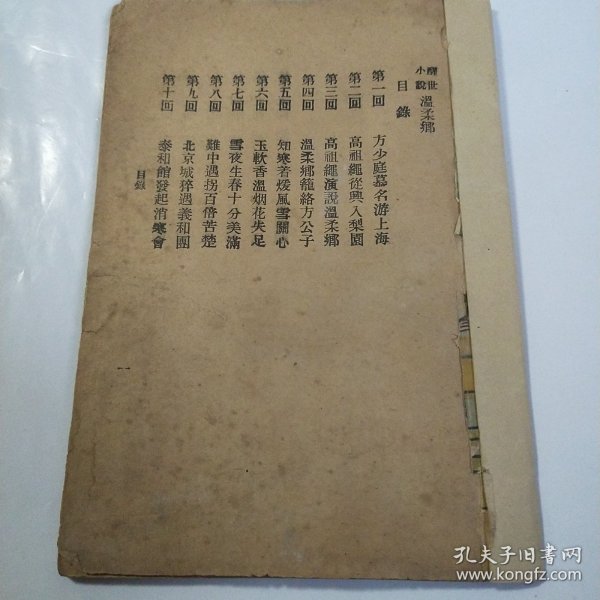 醒世小說 溫柔鄉
目錄
第一回 方少庭慕名游上海
第二回 高祖繩從興入梨園
第三回 高祖繩演說溫柔鄉
第四回 溫柔鄉籠絡方公子
第五回 知寒著煖風雪關心
第六回 玉軟香溫烟花失足
第七回 雪夜生春十分美滿
第八回 難中遇拐百倍苦楚
第九回 北京城猝遇義和團
第十回 泰和館發起消寒會
目錄
一
孔夫子旧书网
www.kongfz.com